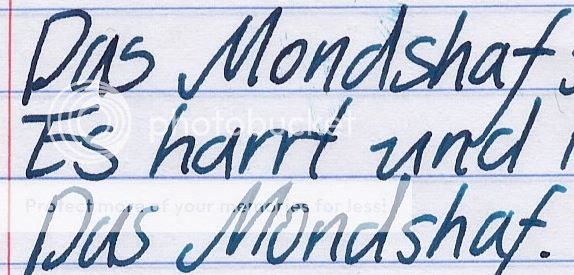 Das Mondshaf
Es harrt und
photobucket
Protect more of your memories for less!
Das Mondshaf.